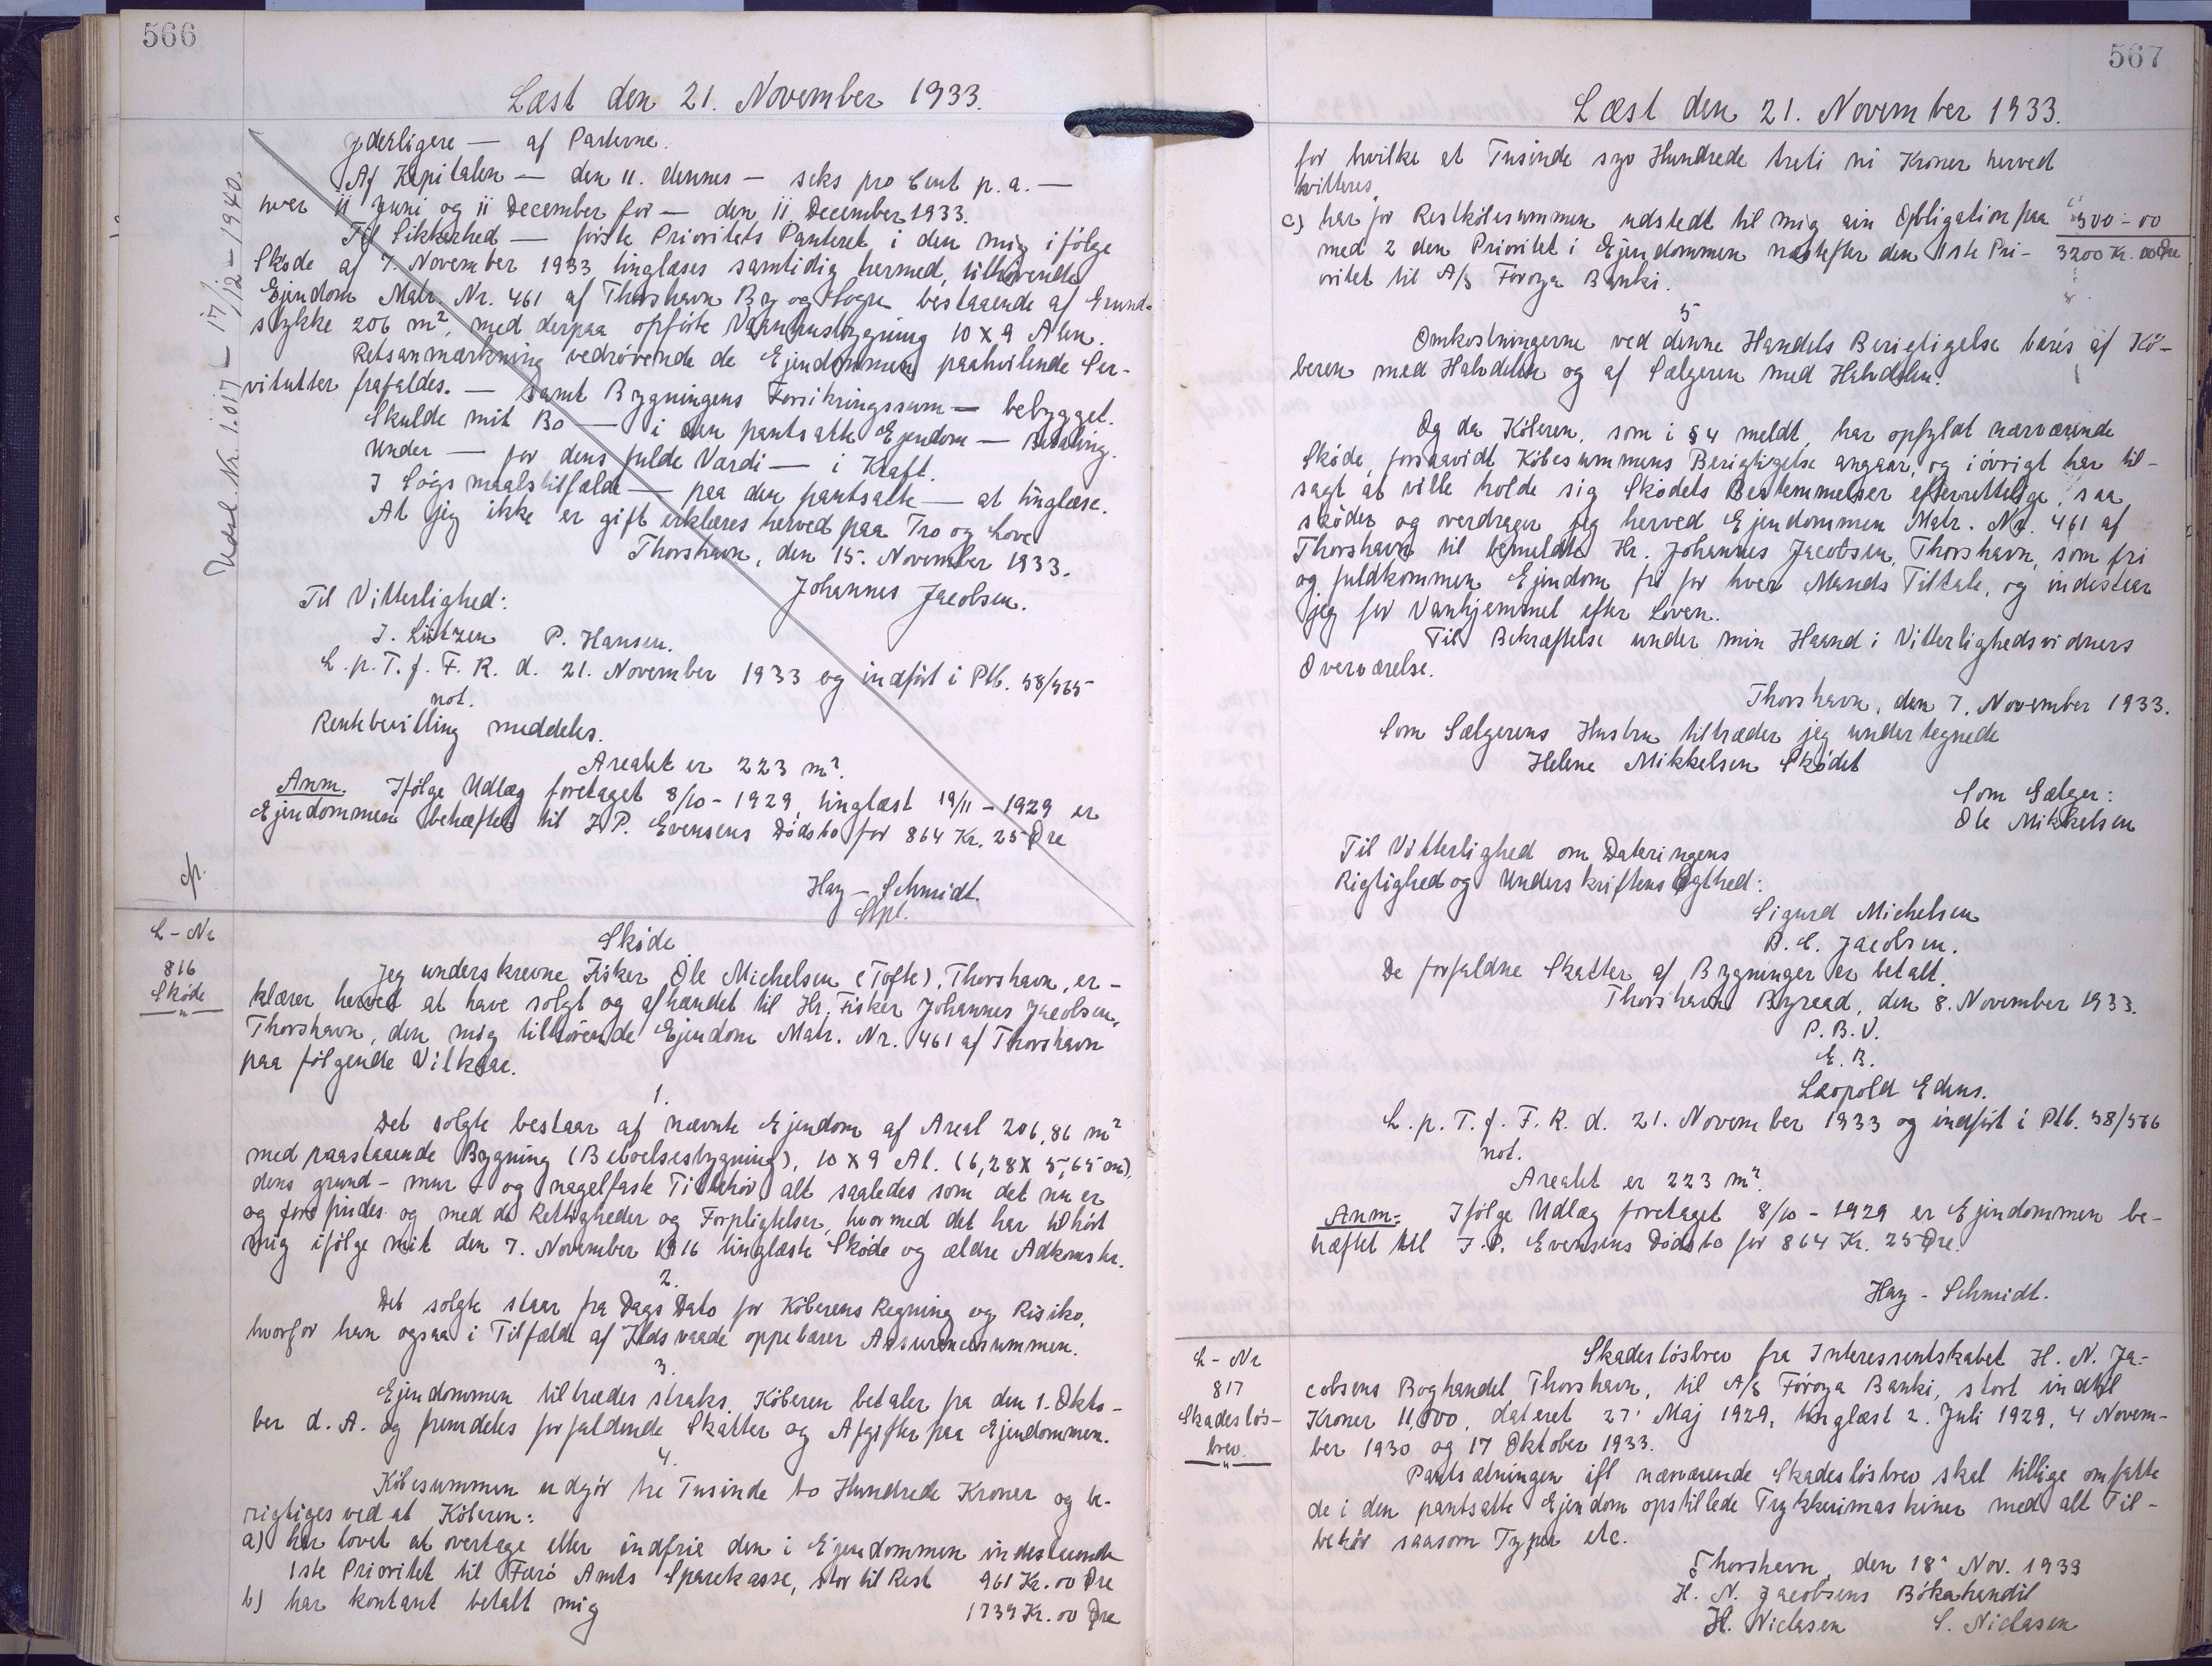 566
Læst den 21. November 1933.
yderligere — af Parterne.
Af Kapitalen — den 11. dennes — seks pro Cent p. a. —
hver 11 Juni og 11 December for — den 11 December 1933.
Til Sikkerhed — förste Prioritets Panteret i den mig ifölge
Sköde af 7 November 1933 tinglæses samtidig hermed, tilhörende
Ejendom Matr. Nr. 461 af Thorshavn By og Sogn bestaaende af Grund-
stykke 206 m², med derpaa opförte Vaaningsbygning 10 x 9 Alen.
Retsanmærkning vedrörende de Ejendommen paahvilende Ser-
vitutter frafaldes. — samt Bygningens Forsikringssum — bebygget.
Skulde mit Bo — i den pantsatte Ejendom — Betaling.
Under — for dens fulde Værdi — i Kraft.
I Sögsmaalstilfælde — paa den pantsatte — at tinglæse.
At jeg ikke er gift erklæres herved paa Tro og Love
Thorshavn, den 15. November 1933.
Johannes Jacobsen.
Til Vitterlighed:
J. Lützen P. Hansen.
L. p. T. f. F. R. d. 21. November 1933 og indfört i Ptb. 58/565
not.
Rentebevilling meddeles.
Arealet er 223 m².
Anm. Ifölge Udlæg foretaget 8/10 - 1929, tinglæst 19/11 - 1929 er
Ejendommen behæftet til J. P. Evensens Dödsbo for 864 Kr. 25 Öre
Hay - Schmidt.
Udsl. Nr. 1.017 17/12 - 1940.
L - Nr
816
Sköde
"
Sköde
Jeg underskrevne Fisker Ole Michelsen (Tofte), Thorshavn, er-
klærer herved at have solgt og afhændet til Hr. Fisker Johannes Jacobsen,
Thorshavn, den mig tilhörende Ejendom Matr. Nr. 461 af Thorshavn
paa fölgende Vilkaar.
1.
Det solgte bestaar af nævnte Ejendom af Areal 206,86 m²
med paastaaende Bygning (Beboelsesbygning), 10 x 9 Al. (6,28 x 5,65 m),
dens grund- mur- og nagelfaste Tilbehör alt saaledes som det nu er
og forefindes og med de Rettigheder og Forpligtelser, hvormed det har tilhört
mig ifölge mit den 7. November 1916 tinglæste Sköde og ældre Adkomster.
2.
Det solgte staar fra Dags Dato for Köberens Regning og Risiko,
hvorfor han ogsaa i Tilfælde af Ildsvaade oppebærer Assurancesummen.
3.
Ejendommen tiltrædes straks. Köberen betaler fra den 1. Okto-
ber d. A. og fremdeles forfaldende Skatter og Afgifter paa Ejendommen.
4.
Köbesummen udgör tre Tusinde to Hundrede Kroner og be-
rigtiges ved at Köberen:
a) har lovet at overtage eller indfrie den i Ejendommen indestaaende
1ste Prioritet til Færö Amts Sparekasse, stor til Rest 961 Kr. 00 Öre
b) har kontant betalt mig 1739 Kr. 00 Öre
567
Læst den 21. November 1933.
for hvilke et Tusinde syv Hundrede treti ni Kroner herved
kvitteres.
c) har for Restköbesummen udstedt til mig ein Obligation paa " 500 - 00
med 2 den Prioritet i Ejendommen næstefter den 1ste Pri- 3200 Kr. 00 Öre
oritet til A/S Föroya Banki.
5
Omkostningerne ved denne Handels Berigtigelse bæres af Kö-
beren med Halvdelen og af Sælgeren med Halvdelen.
Og da Köberen, som i § 4 meldt, har opfyldt nærværende
Sköde, forsaavidt Köbesummens Berigtigelse angaar, og iövrigt har til-
sagt at ville holde sig Sködets Bestemmelser efterrettelige, saa
sköder og overdrager jeg herved Ejendommen Matr. Nr. 461 af
Thorshavn til bemeldte Hr. Johannes Jacobsen, Thorshavn, som fri
og fuldkommen Ejendom fri for hver Mands Tiltale, og indestaar
jeg for Vanhjemmel efter Loven.
Til Bekræftelse under min Haand i Vitterlighedsvidners
Overværelse.
Thorshavn, den 7. November 1933.
Som Sælgerens Hustru tiltræder jeg undertegnede
Helene Mikkelsen Sködet
Som Sælger:
Ole Mikkelsen
Til Vitterlighed om Dateringens
Rigtighed og Underskriftens Ægthed:
Sigurd Michelsen
B. C. Jacobsen.
De forfaldne Skatter af Bygninger er betalt.
Thorshavn Byraad, den 8. November 1933.
P. B. V.
E. B.
Leopold Edens.
L. p. T. f. F. R. d. 21. November 1933 og indfört i Ptb. 58/566
not.
Arealet er 223 m².
Anm: Ifölge Udlæg foretaget 8/10 - 1929 er Ejendommen be-
hæftet til J. P. Evensens Dödsbo for 864 Kr. 25 Öre.
Hay - Schmidt.
L - Nr
817
Skadeslös-
brev.
"
Skadeslösbrev fra Interessentskabet H. N. Ja-
cobsens Boghandel Thorshavn, til A/S Föroya Banki, stort indtil
Kroner 11,000, dateret 27' Maj 1929, tinglæst 2. Juli 1929, 4 Novem-
ber 1930 og 17 Oktober 1933.
Pantsætningen ifl nærværende Skadeslösbrev skal tillige omfatte
de i den pantsatte Ejendom opstillede Trykkerimaskiner med alt Til-
behör saasom Typer etc.
Thorshavn, den 18' Nov. 1933
H. N. Jacobsens Bókahandil
H. Niclasen S. Niclasen